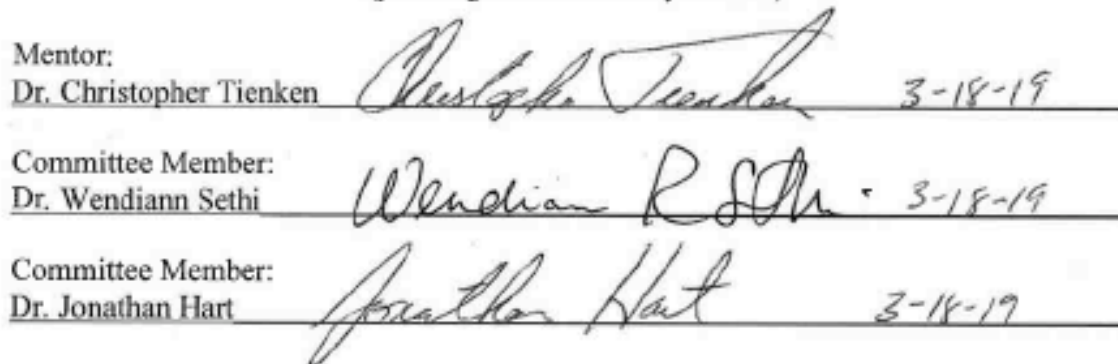 Mentor:
Dr. Christopher Tienken Christopher Tienken 3-18-19
Committee Member:
Dr. Wendiann Sethi Wendiann R Sethi 3-18-19
Committee Member:
Dr. Jonathan Hart Jonathan Hart 3-18-19